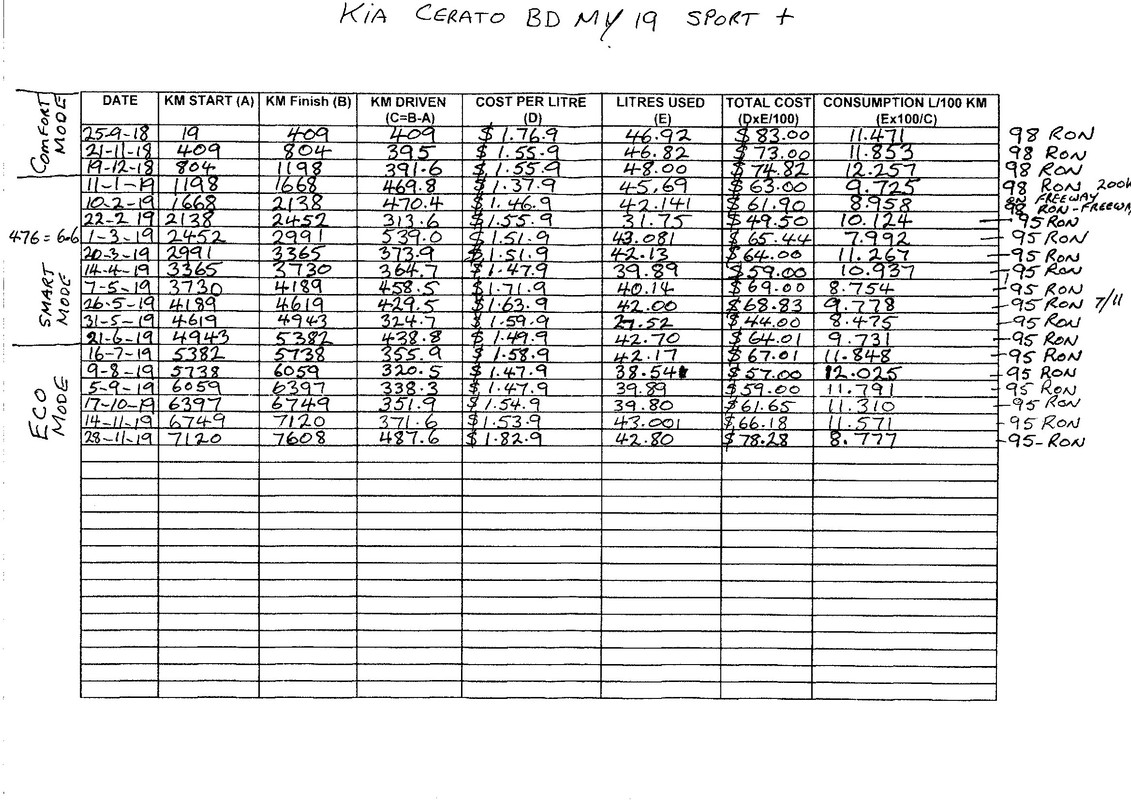 KIA CERATO BD MY 19 SPORT +
COMFORT MODE
SMART MODE
ECO MODE
476 = 6.6
DATE KM START (A) KM Finish (B) KM DRIVEN (C=B-A) COST PER LITRE (D) LITRES USED (E) TOTAL COST (DxE/100) CONSUMPTION L/100 KM (Ex100/C)
25-9-18 19 409 409 $1.76.9 46.92 $83.00 11.471 98 RON
21-11-18 409 804 395 $1.55.9 46.82 $73.00 11.853 98 RON
19-12-18 804 1198 391.6 $1.55.9 48.00 $74.82 12.257 98 RON
11-1-19 1198 1668 469.8 $1.37.9 45.69 $63.00 9.725 98 RON
ON FREEWAY
10-2-19 1668 2138 470.4 $1.46.9 42.141 $61.90 8.958 98 RON - FREEWAY
22-2 19 2138 2452 313.6 $1.55.9 31.75 $49.50 10.124 - 95 RON
1-3-19 2452 2991 539.0 $1.51.9 43.081 $65.44 7.992 - 95 RON
20-3-19 2991 3365 373.9 $1.51.9 42.13 $64.00 11.267 - 95 RON
14-4-19 3365 3730 364.7 $1.47.9 39.89 $59.00 10.937 - 95 RON
7-5-19 3730 4189 458.5 $1.71.9 40.14 $69.00 8.754 - 95 RON
26-5-19 4189 4619 429.5 $1.63.9 42.00 $68.83 9.778 - 95 RON 7/11
31-5-19 4619 4943 324.7 $1.59.9 27.52 $44.00 8.475 - 95 RON
21-6-19 4943 5382 438.8 $1.49.9 42.70 $64.01 9.731 - 95 RON
16-7-19 5382 5738 355.9 $1.58.9 42.17 $67.01 11.848 - 95 RON
9-8-19 5738 6059 320.5 $1.47.9 38.54 $57.00 12.025 - 95 RON
5-9-19 6059 6397 338.3 $1.47.9 39.89 $59.00 11.791 - 95 RON
17-10-19 6397 6749 351.9 $1.54.9 39.80 $61.65 11.310 - 95 RON
14-11-19 6749 7120 371.6 $1.53.9 43.001 $66.18 11.571 - 95 RON
28-11-19 7120 7608 487.6 $1.82.9 42.80 $78.28 8.777 - 95-RON